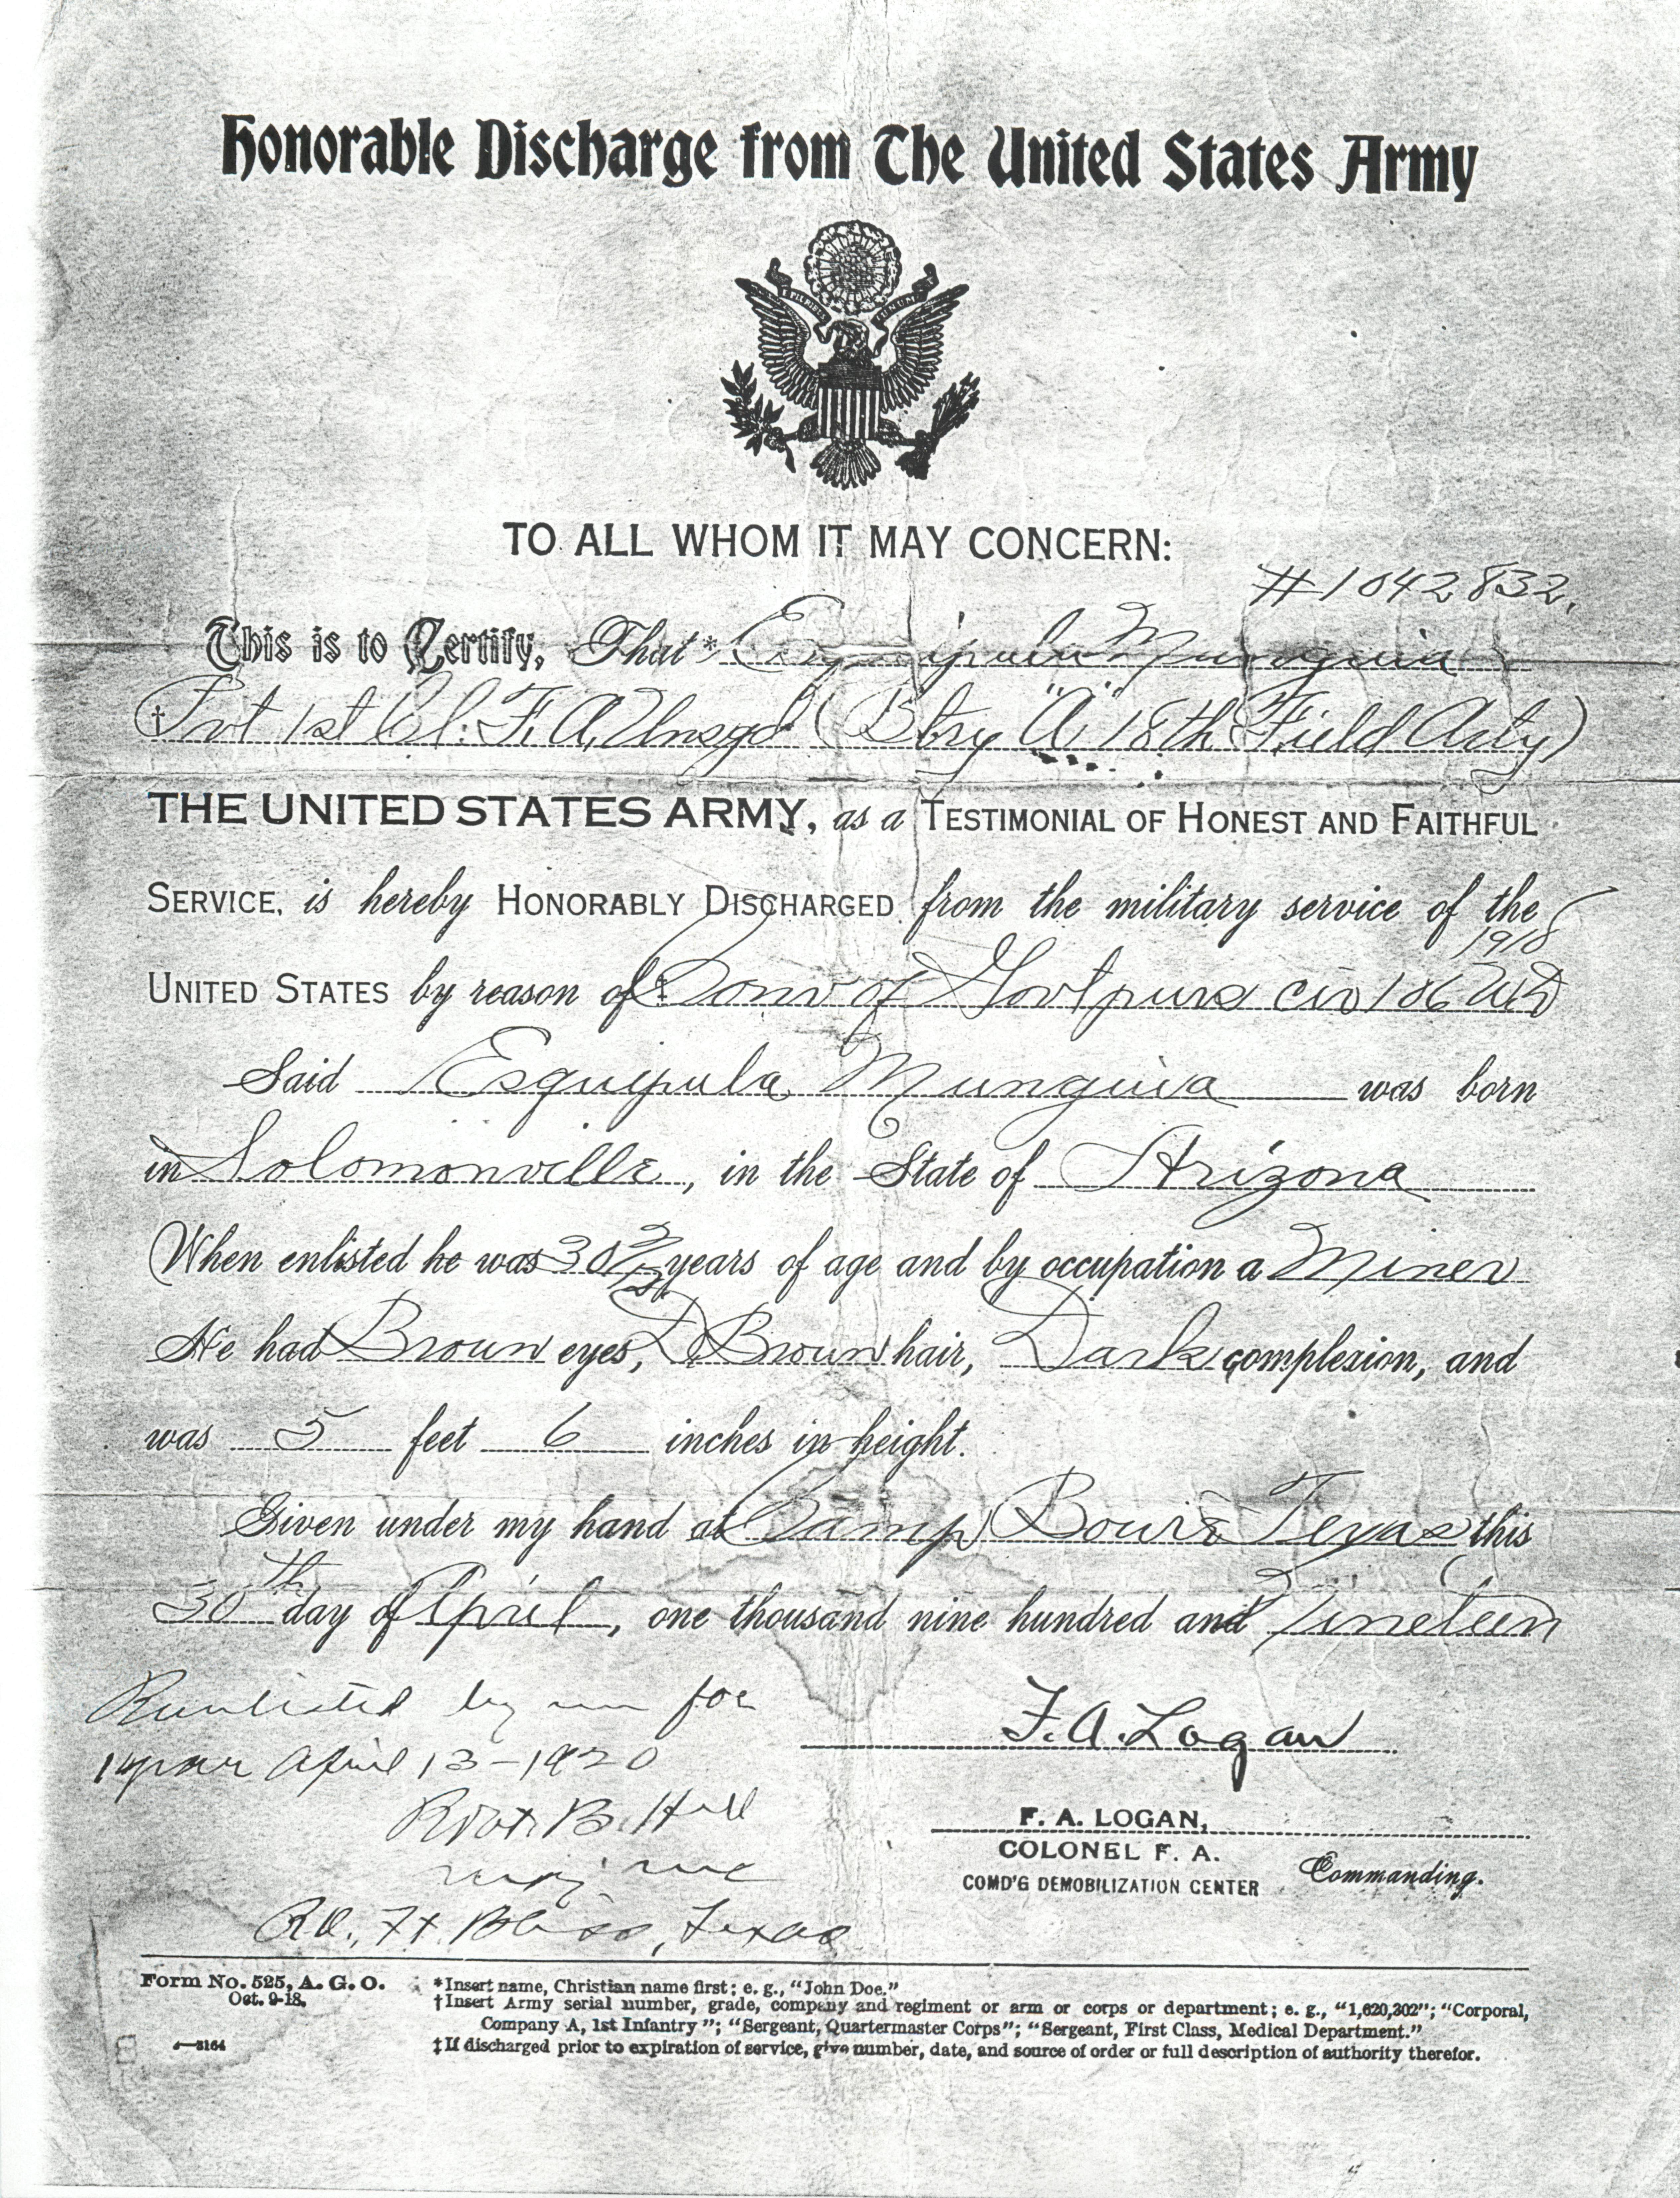 Honorable Discharge from The United States Army
TO ALL WHOM IT MAY CONCERN:
#1042832.
This is to Certify, That * Esquipula Munguia
† Pvt 1st Cl. F. A. Unsgd (Btry "A" 18th Field Arty)
THE UNITED STATES ARMY, as a TESTIMONIAL OF HONEST AND FAITHFUL
SERVICE, is hereby HONORABLY DISCHARGED from the military service of the
1918
UNITED STATES by reason of ‡ Conv of Govt purs cir 106 WD
Said Esquipula Munguia was born
in Solomonville, in the State of Arizona
When enlisted he was 30 years of age and by occupation a Miner
He had Brown eyes, D Brown hair, Dark complexion, and
was 5 feet 6 inches in height.
Given under my hand at Camp Bowie Texas this
30th day of April, one thousand nine hundred and Nineteen
Reenlisted by me for
1 year April 13-1920
F.A. Logan
Robt B. Hill
F. A. LOGAN,
COLONEL F. A.
COMD'G DEMOBILIZATION CENTER Commanding.
R.O., Ft. Bliss, Texas
Form No. 525, A. G. O.
Oct. 9-18.
*Insert name, Christian name first; e. g., "John Doe."
†Insert Army serial number, grade, company and regiment or arm or corps or department; e. g., "1,620,302"; "Corporal,
Company A, 1st Infantry"; "Sergeant, Quartermaster Corps"; "Sergeant, First Class, Medical Department."
‡If discharged prior to expiration of service, give number, date, and source of order or full description of authority therefor.
4—3164